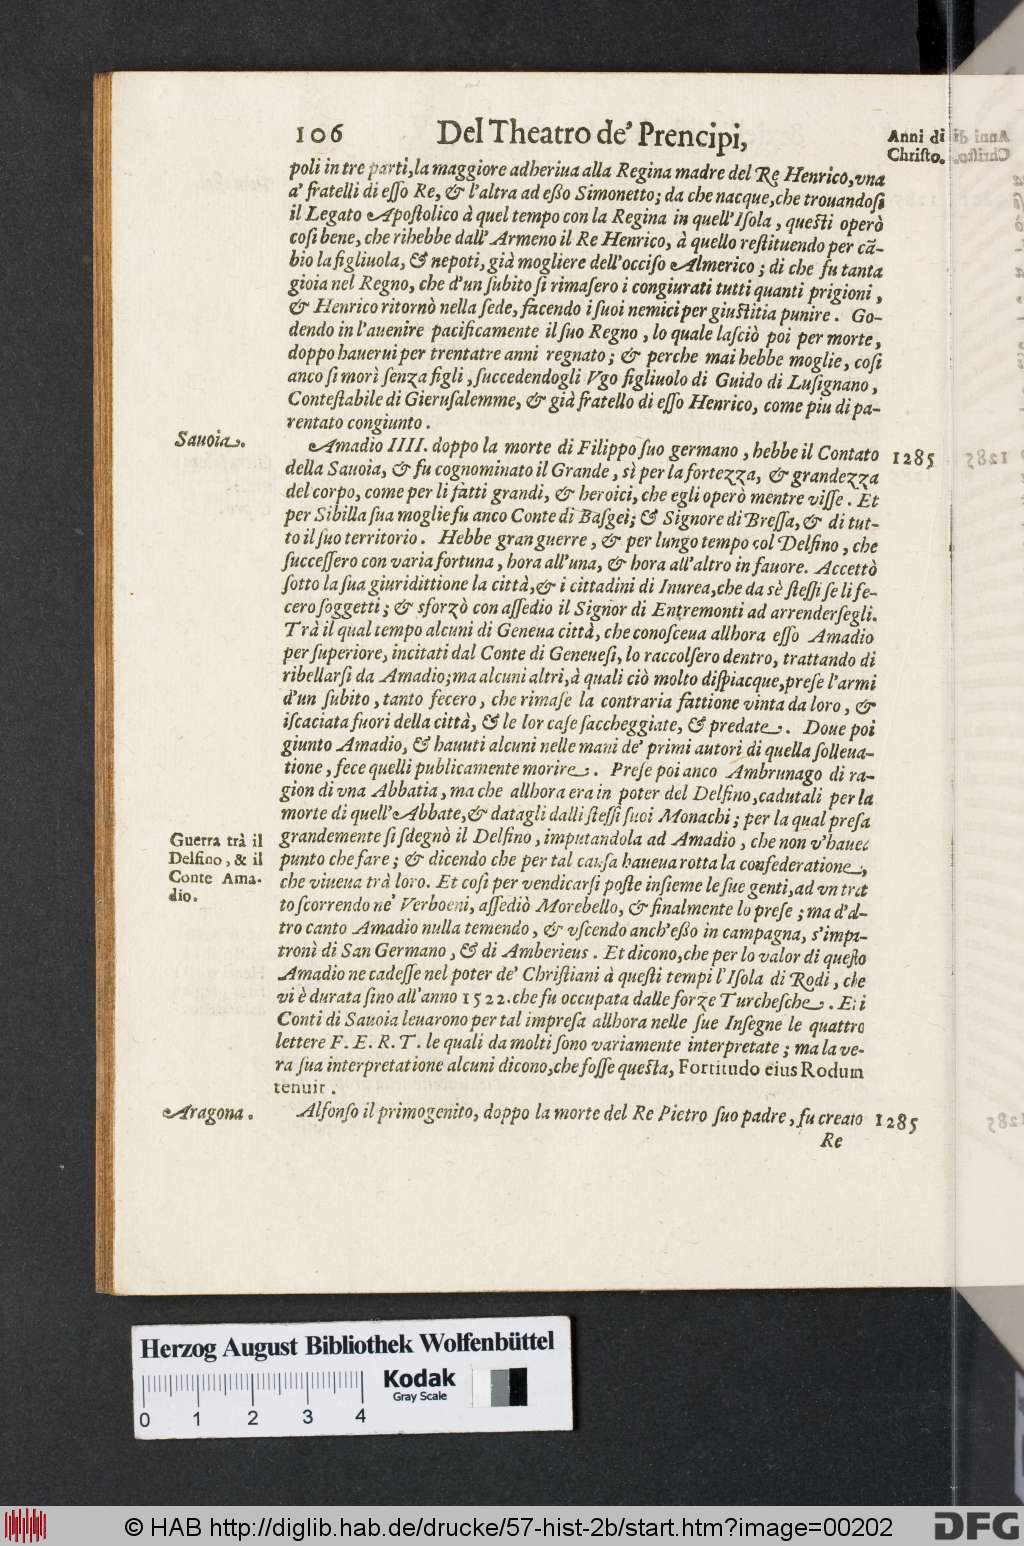 106 Del Theatro de' Prencipi, Anni di Christo.
poli in tre parti, la maggiore adheriua alla Regina madre del Re Henrico, vna
a' fratelli di eſſo Re, & l'altra ad eßo Simonetto; da che nacque, che trouandoſi
il Legato Apoſtolico à quel tempo con la Regina in quell'Iſola, queſti operò
coſi bene, che rihebbe dall'Armeno il Re Henrico, à quello reſtituendo per cã-
bio la figliuola, & nepoti, già mogliere dell'occiſo Almerico; di che fu tanta
gioia nel Regno, che d'un ſubito ſi rimaſero i congiurati tutti quanti prigioni,
& Henrico ritornò nella ſede, facendo i ſuoi nemici per giuſtitia punire. Go-
dendo in l'auenire pacificamente il ſuo Regno, lo quale laſciò poi per morte,
doppo hauerui per trentatre anni regnato; & perche mai hebbe moglie, coſi
anco ſi morì ſenza figli, ſuccedendogli Vgo figliuolo di Guido di Luſignano,
Conteſtabile di Gieruſalemme, & già fratello di eſſo Henrico, come piu di pa-
rentato congiunto.
Sauoia. Amadio IIII. doppo la morte di Filippo ſuo germano, hebbe il Contato 1285
della Sauoia, & fu cognominato il Grande, sì per la fortezza, & grandezza
del corpo, come per li fatti grandi, & heroici, che egli operò mentre viſſe. Et
per Sibilla ſua moglie fu anco Conte di Baſgei; & Signore di Breſſa, & di tut-
to il ſuo territorio. Hebbe gran guerre, & per lungo tempo col Delfino, che
ſucceſſero con varia fortuna, hora all'una, & hora all'altro in fauore. Accettò
ſotto la ſua giuridittione la città, & i cittadini di Inurea, che da sè ſteſſi ſe li fe-
cero ſoggetti; & sforzò con aſſedio il Signor di Entremonti ad arrenderſegli.
Trà il qual tempo alcuni di Geneua città, che conoſceua allhora eſſo Amadio
per ſuperiore, incitati dal Conte di Geneueſi, lo raccolſero dentro, trattando di
ribellarſi da Amadio; ma alcuni altri, à quali ciò molto diſpiacque, preſe l'armi
d'un ſubito, tanto fecero, che rimaſe la contraria fattione vinta da loro, &
iſcaciata fuori della città, & le lor caſe ſaccheggiate, & predate. Doue poi
giunto Amadio, & hauuti alcuni nelle mani de' primi autori di quella ſolleua-
tione, fece quelli publicamente morire. Preſe poi anco Ambrunago di ra-
gion di vna Abbatia, ma che allhora era in poter del Delfino, cadutali per la
morte di quell'Abbate, & datagli dalli ſteſſi ſuoi Monachi; per la qual preſa
Guerra trà il Delfino, & il Conte Ama-dio.
grandemente ſi ſdegnò il Delfino, imputandola ad Amadio, che non v'hauea
punto che fare; & dicendo che per tal cauſa haueua rotta la confederatione,
che viueua trà loro. Et coſi per vendicarſi poſte inſieme le ſue genti, ad vn trat
to ſcorrendo ne' Verboeni, aſſediò Morebello, & finalmente lo preſe; ma d'al-
tro canto Amadio nulla temendo, & vſcendo anch'eßo in campagna, s'impa-
tronì di San Germano, & di Amberieus. Et dicono, che per lo valor di queſto
Amadio ne cadeſſe nel poter de' Chriſtiani à queſti tempi l'Iſola di Rodi, che
vi è durata ſino all'anno 1522. che fu occupata dalle forze Turcheſche. Et i
Conti di Sauoia leuarono per tal impreſa allhora nelle ſue Inſegne le quattro
lettere F. E. R. T. le quali da molti ſono variamente interpretate; ma la ve-
ra ſua interpretatione alcuni dicono, che foſſe queſta, Fortitudo eius Rodum
tenuit.
Aragona. Alfonſo il primogenito, doppo la morte del Re Pietro ſuo padre, fu creato 1285
Re
Herzog August Bibliothek Wolfenbüttel
Kodak
Gray Scale
0 1 2 3 4
© HAB http://diglib.hab.de/drucke/57-hist-2b/start.htm?image=00202
DFG